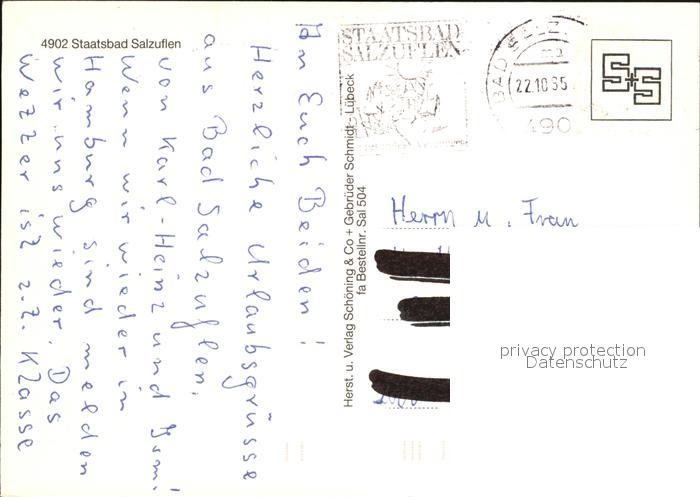 4902 Staatsbad Salzuflen
An Euch Beiden!
Herzliche Urlaubsgrüsse
aus Bad Salzuflen.
von Karl-Heinz und
Wenn wir wieder in
Hamburg sind melden
wir uns wieder. Das
Wetter ist z.Z. Klasse
Herst. u. Verlag Schöning & Co + Gebrüder Schmidt - Lübeck
fa Bestellnr. Sal 504
STAATSBAD
SALZUFLEN
BAD
22.10.85
490
S+S
Herrn u. Frau
privacy protection
Datenschutz